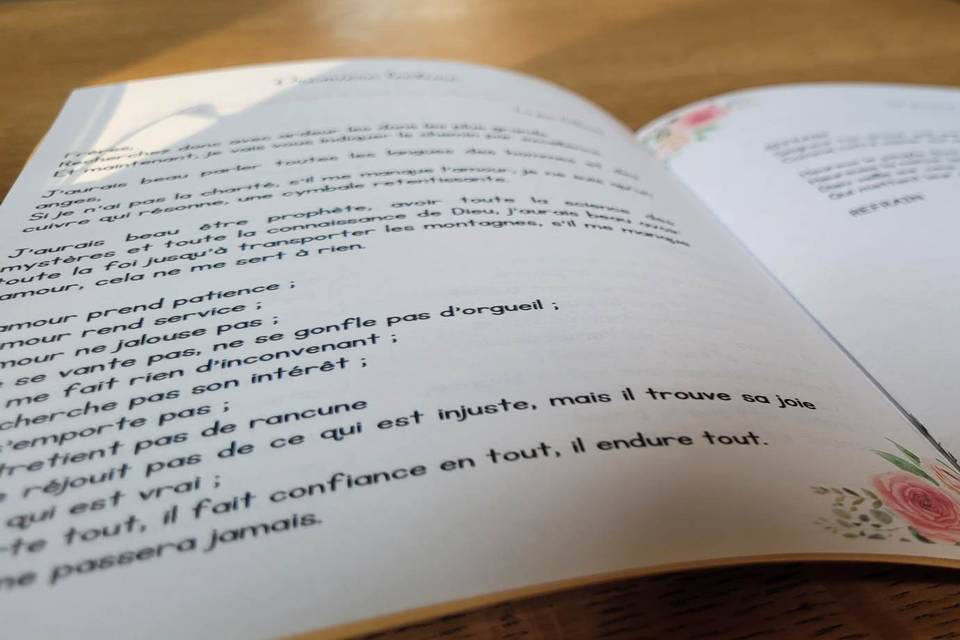 Frères,
Recherchez donc avec ardeur les dons les plus grands.
Et maintenant, je vais vous indiquer le chemin par excellence
J'aurais beau parler toutes les langues des hommes et des
anges,
Si je n'ai pas la charité, s'il me manque l'amour, je ne suis qu'un
cuivre qui résonne, une cymbale retentissante.
J'aurais beau être prophète, avoir toute la science des
mystères et toute la connaissance de Dieu, j'aurais beau avoir
toute la foi jusqu'à transporter les montagnes, s'il me manque
amour, cela ne me sert à rien.
amour prend patience ;
mour rend service ;
mour ne jalouse pas ;
se vante pas, ne se gonfle pas d'orgueil ;
me fait rien d'inconvenant ;
cherche pas son intérêt ;
s'emporte pas ;
tretient pas de rancune
réjouit pas de ce qui est injuste, mais il trouve sa joie
qui est vrai ;
te tout, il fait confiance en tout, il endure tout.
ne passera jamais.
REFRAIN